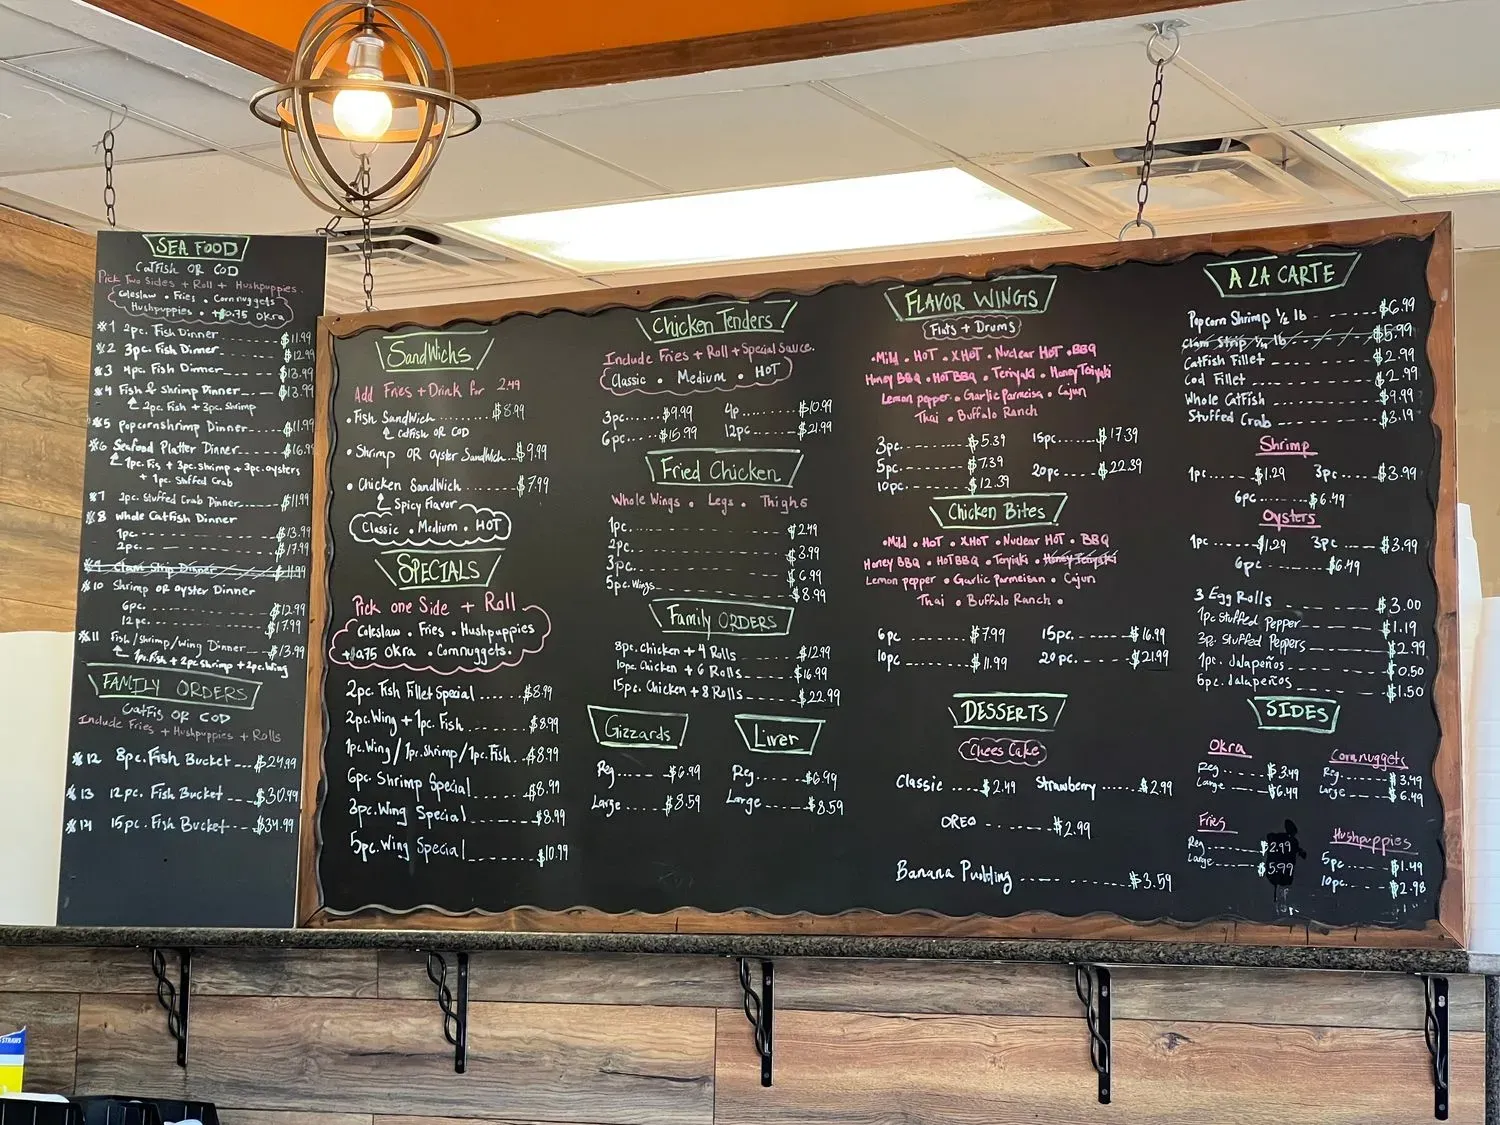 SEA FOOD
Catfish OR COD
Pick Two Sides + Roll + Hushpuppies.
Coleslaw • Fries • Cornnuggets
Hushpuppies • +$0.75 Okra
#1 2pc. Fish Dinner $11.99
#2 3pc. Fish Dinner $12.99
#3 4pc. Fish Dinner $13.99
#4 Fish & Shrimp Dinner $13.99
2pc. Fish + 3pc. Shrimp
#5 Popcornshrimp Dinner $11.99
#6 Seafood Platter Dinner $16.99
1pc. Fis + 3pc. Shrimp + 3pc. oysters
+ 1pc. Stuffed Crab
#7 2pc. Stuffed Crab Dinner $11.99
#8 Whole Catfish Dinner
1pc $13.99
2pc. $17.99
Clam Strip Dinner $11.99
#10 Shrimp OR oyster Dinner
6pc. $12.99
12pc. $17.99
#11 Fish/shrimp/wing Dinner $13.99
1pc. Fish + 2pc shrimp + 2pc. wing
FAMILY ORDERS
Catfis OR COD
Include Fries + Hushpuppies + Rolls
#12 8pc. Fish Bucket $24.99
#13 12pc. Fish Bucket $30.99
#14 15pc. Fish Bucket $34.99
SandWichs
Add Fries + Drink for 2.49
• Fish Sandwich $8.99
Catfish OR COD
• Shrimp OR oyster Sandwich $9.99
• Chicken Sandwich $7.99
Spicy Flavor
Classic • Medium • HOT
SPECIALS
Pick one Side + Roll
Coleslaw • Fries • Hushpuppies
+$0.75 Okra • Cornnuggets.
2pc. Fish Fillet Special $8.99
2pc. Wing + 1pc. Fish $8.99
1pc. Wing/1pc. Shrimp/1pc. Fish $8.99
6pc. Shrimp Special $8.99
3pc. Wing Special $8.99
5pc. Wing Special $10.99
Chicken Tenders
Include Fries + Roll + Special Sauce.
Classic • Medium • HOT
3pc $9.99 4p $10.99
6pc $15.99 12pc $21.99
Fried Chicken
Whole Wings • Legs • Thighs
1pc. $2.49
2pc. $3.99
3pc. $6.99
5pc. Wings $8.99
Family ORDERS
8pc. chicken + 4 Rolls $12.99
10pc. Chicken + 6 Rolls $16.99
15pc. Chicken + 8 Rolls $22.99
Gizzards
Reg $6.99
Large $8.59
Liver
Reg. $6.99
Large $8.59
FLAVOR WINGS
Flats + Drums
• Mild • HOT • XHOT • Nuclear HOT • BBQ
Honey BBQ • HOT BBQ • Teriyaki • Honey Teriyaki
Lemon pepper • Garlic Parmeisa • Cajun
Thai • Buffalo Ranch
3pc $5.39 15pc $17.39
5pc $7.39 20pc $22.39
10pc $12.39
Chicken Bites
• Mild • HOT • XHOT • Nuclear HOT • BBQ
Honey BBQ • HOT BBQ • Teriyaki • Honey Teriyaki
Lemon pepper • Garlic Parmeisan • Cajun
Thai • Buffalo Ranch •
6pc $7.99 15pc. $16.99
10pc $11.99 20pc. $21.99
DESSERTS
Chees Cake
Classic $2.49 Strawberry $2.99
OREO $2.99
Banana Pudding $3.59
A LA CARTE
Popcorn Shrimp 1/2 lb $6.99
Clam Strip 1/2 lb $5.99
Catfish Fillet $2.99
Cod Fillet $2.99
Whole Catfish $9.99
Stuffed Crab $3.19
Shrimp
1pc $1.29 3pc $3.99
6pc $6.49
Oysters
1pc $1.29 3pc $3.99
6pc $6.49
3 Egg Rolls $3.00
1pc. Stuffed Pepper $1.19
3pc. Stuffed Peppers $2.99
1pc. Jalapeños $0.50
6pc. Jalapeños $1.50
SIDES
Okra
Reg $3.49
Large $6.49
Cornnuggets
Reg $3.49
Large $6.49
Fries
Reg $2.99
Large $5.99
Hushpuppies
5pc $1.49
10pc $2.98
STRAWS